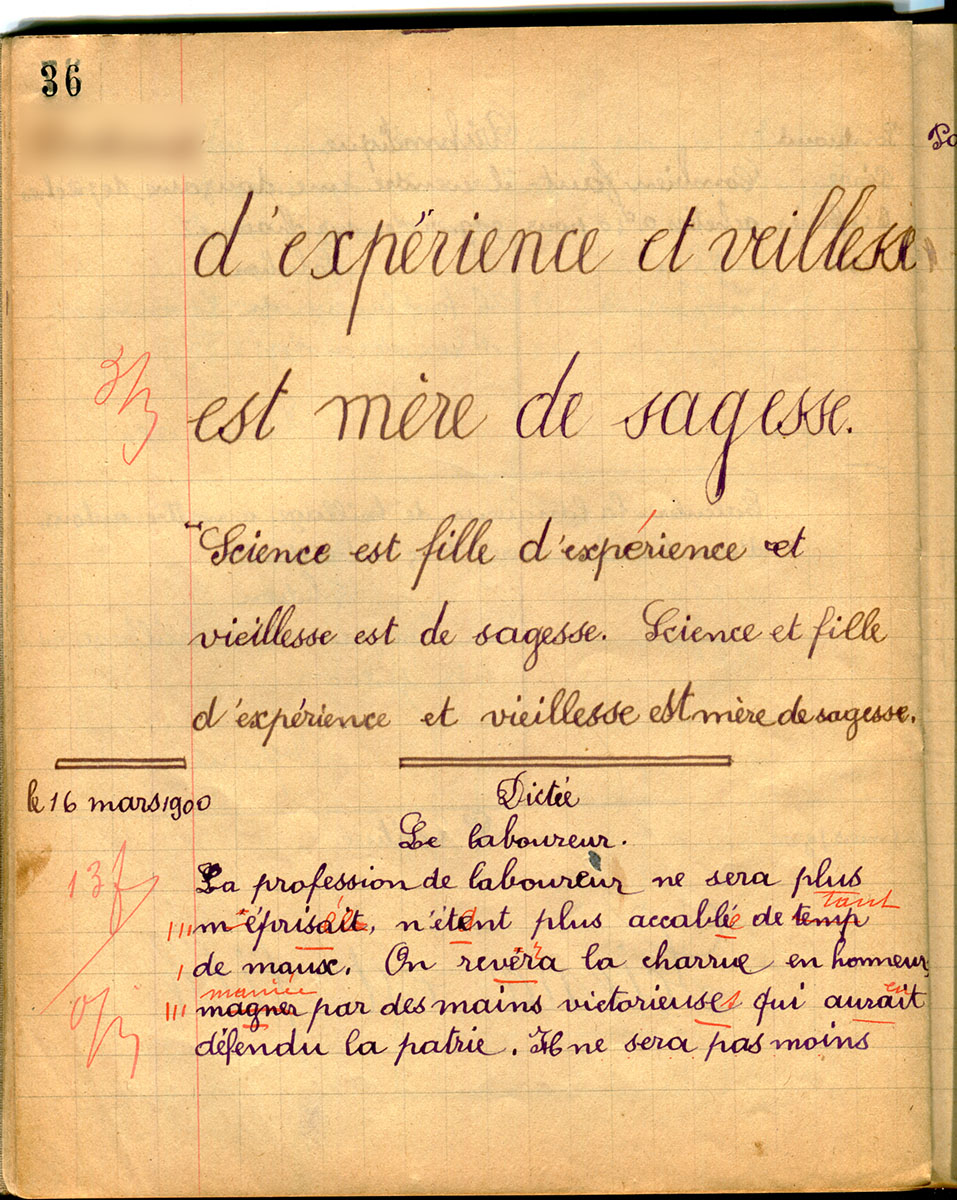 36
d'expérience et veillesse
est mère de sagesse.
3/3
Science est fille d'expérience et
vieillesse est de sagesse. Science et fille
d'expérience et vieillesse est mère de sagesse.
le 16 mars 1900
Dictée
Le laboureur.
13f
La profession de laboureur ne sera plus
tant
m'éprisait, n'étent plus accablée de temp
de maux. On revéra la charrue en honneur
maniée
magner par des mains victorieuses qui aurait
0/3
défendu la patrie. Il ne sera pas moins